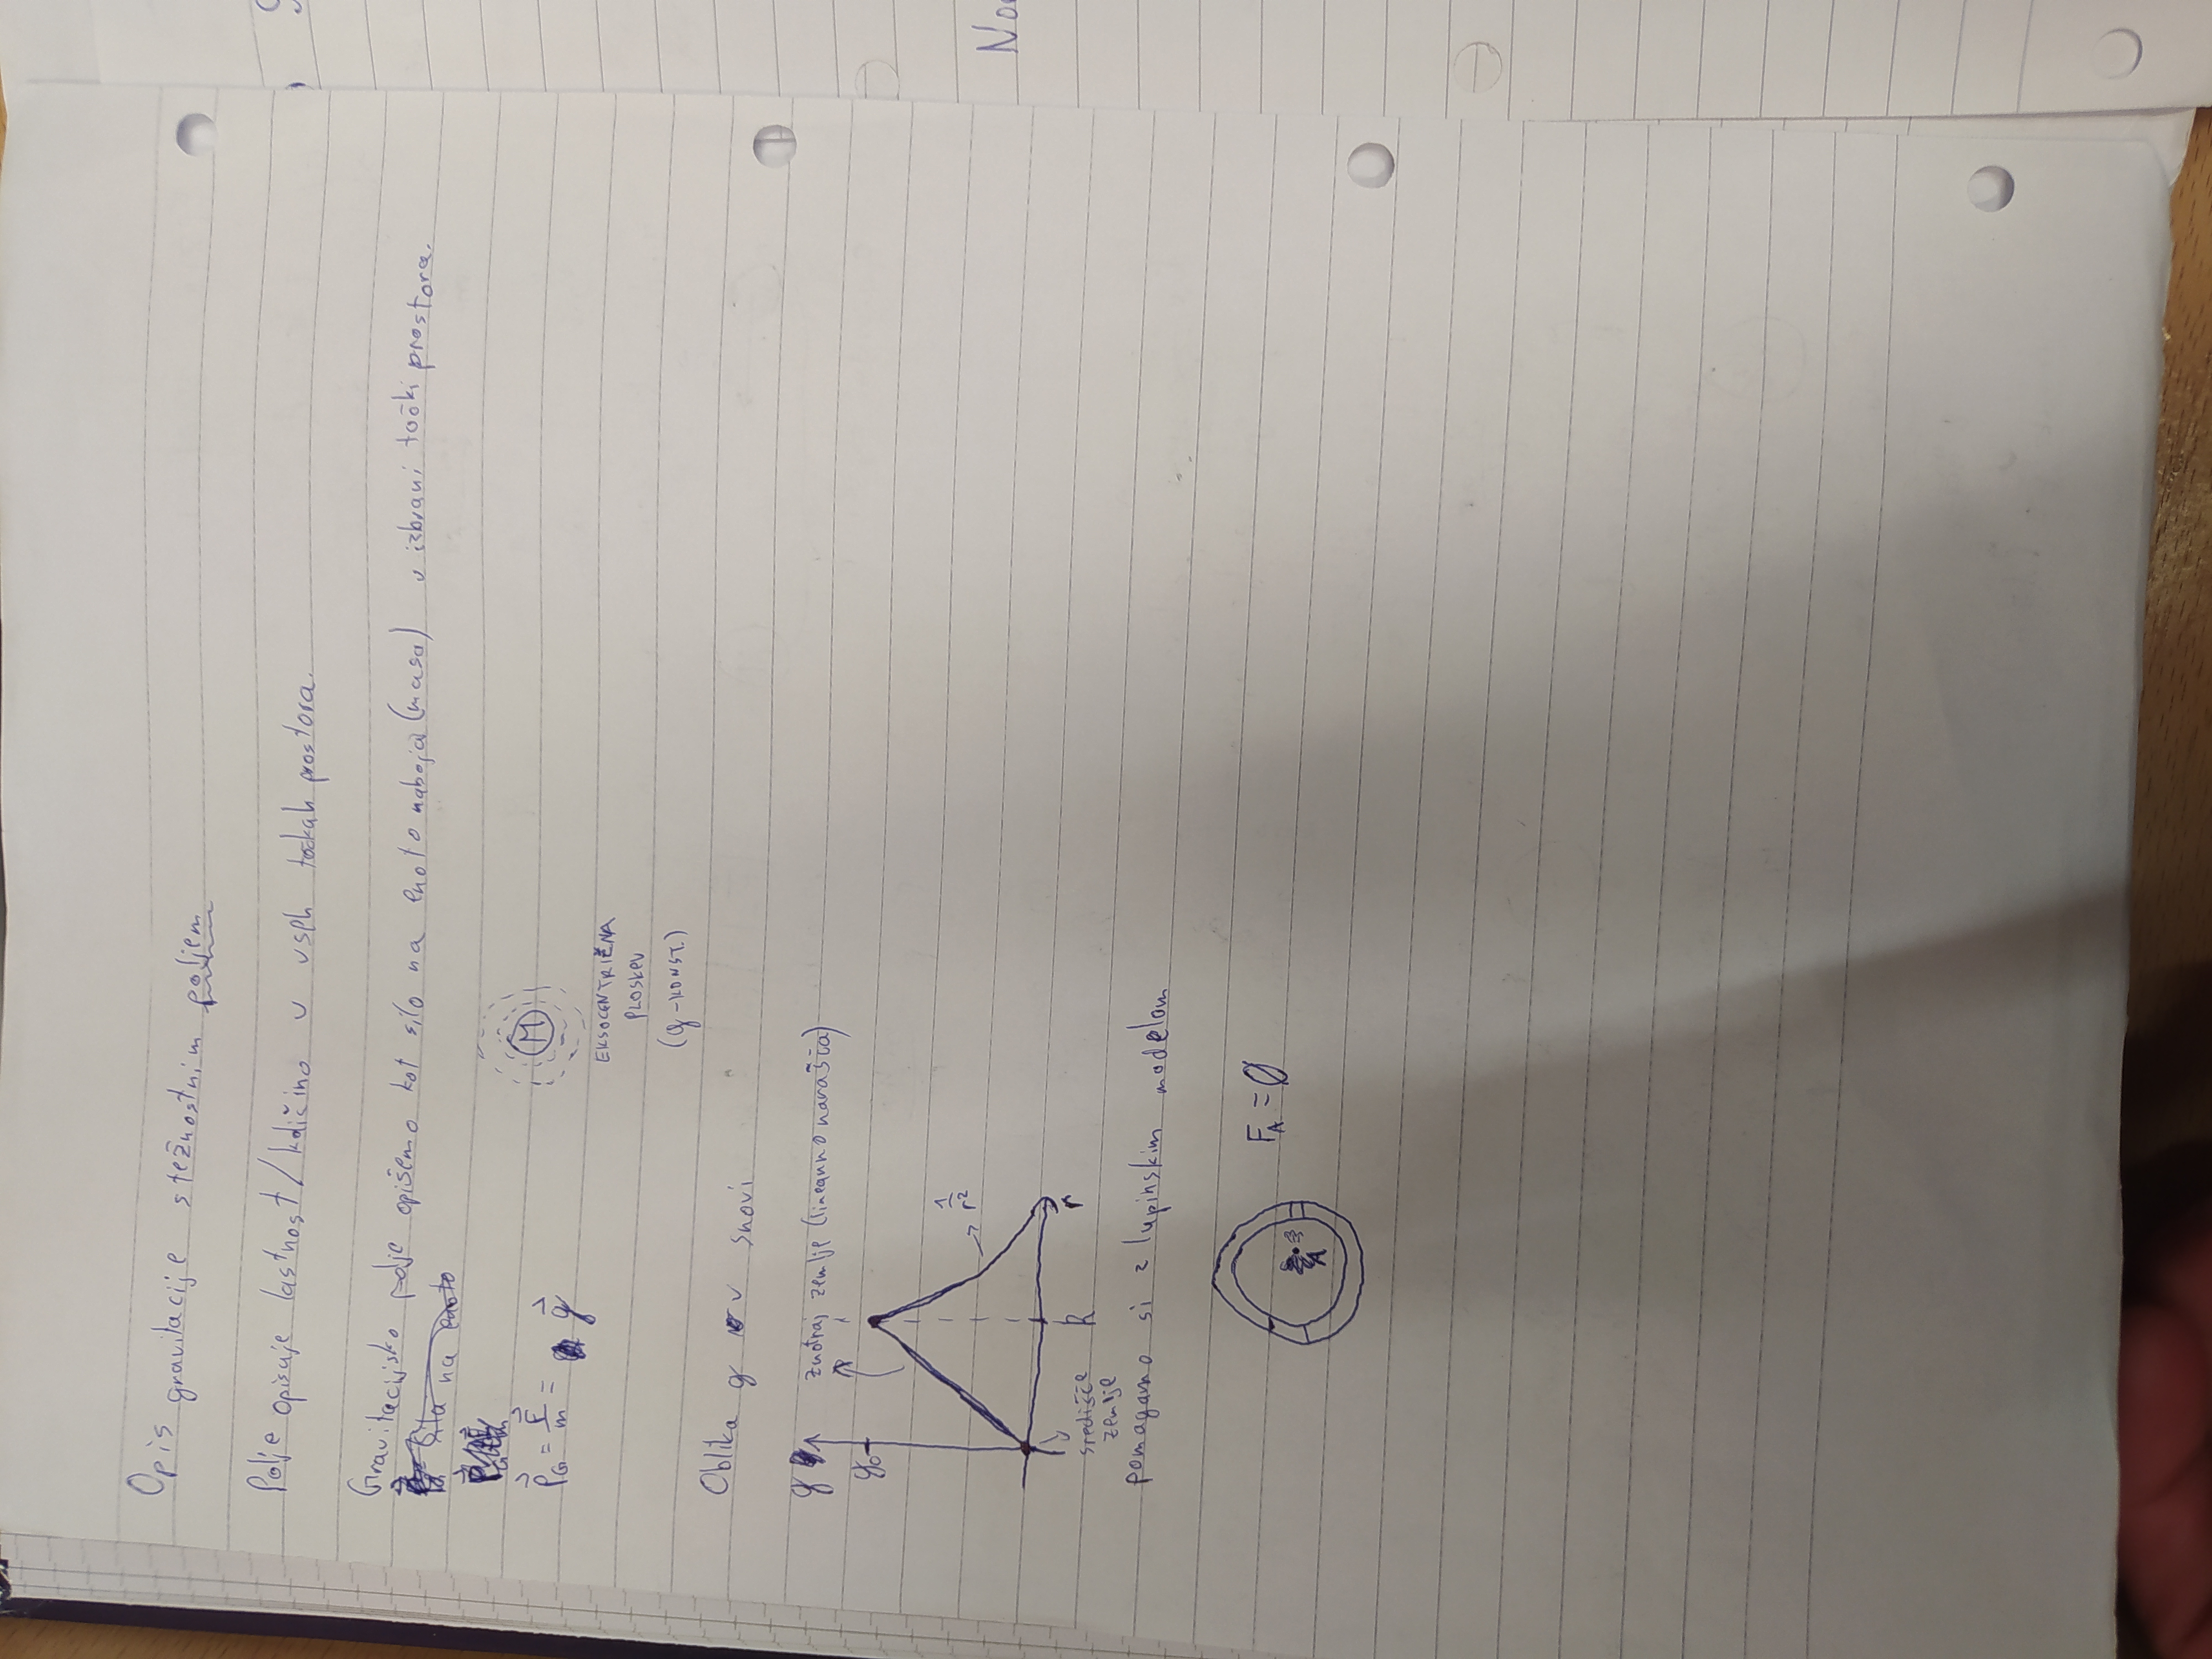 Opis gravitacije s težnostnim poljem
Polje opisuje lastnost/količino v vseh točkah prostora.
Gravitacijsko polje opišemo kot silo na enoto naboja (masa) v izbrani točki prostora.
Sila na enoto
ρ⃗G = F⃗/m = g⃗
M
EKSOCENTRIČNA
PLOSKEV
(g-KONST.)
Oblika g v snovi
g
znotraj zemlje (linearno narašča)
g₀
1/r²
R
r
središče
zemlje
pomagamo si z lupinskim modelom
F_A = 0
A